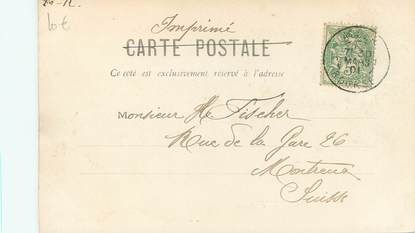 10 €
Imprimé
CARTE POSTALE
Ce côté est exclusivement réservé à l'adresse
Monsieur H. Fischer
Rue de la Gare 26
Montreux
Suisse